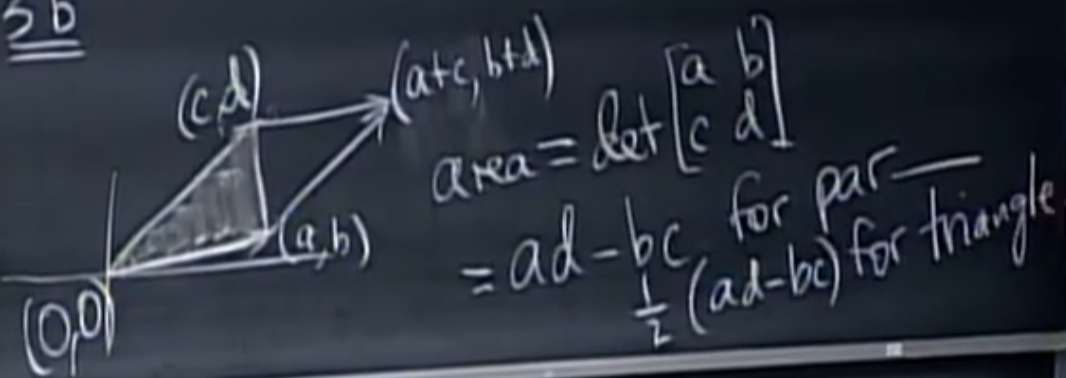 3b
(c,d)
(a+c, b+d)
(a,b)
(0,0)
area = det [a b
c d]
= ad-bc for par—
1/2 (ad-bc) for triangle